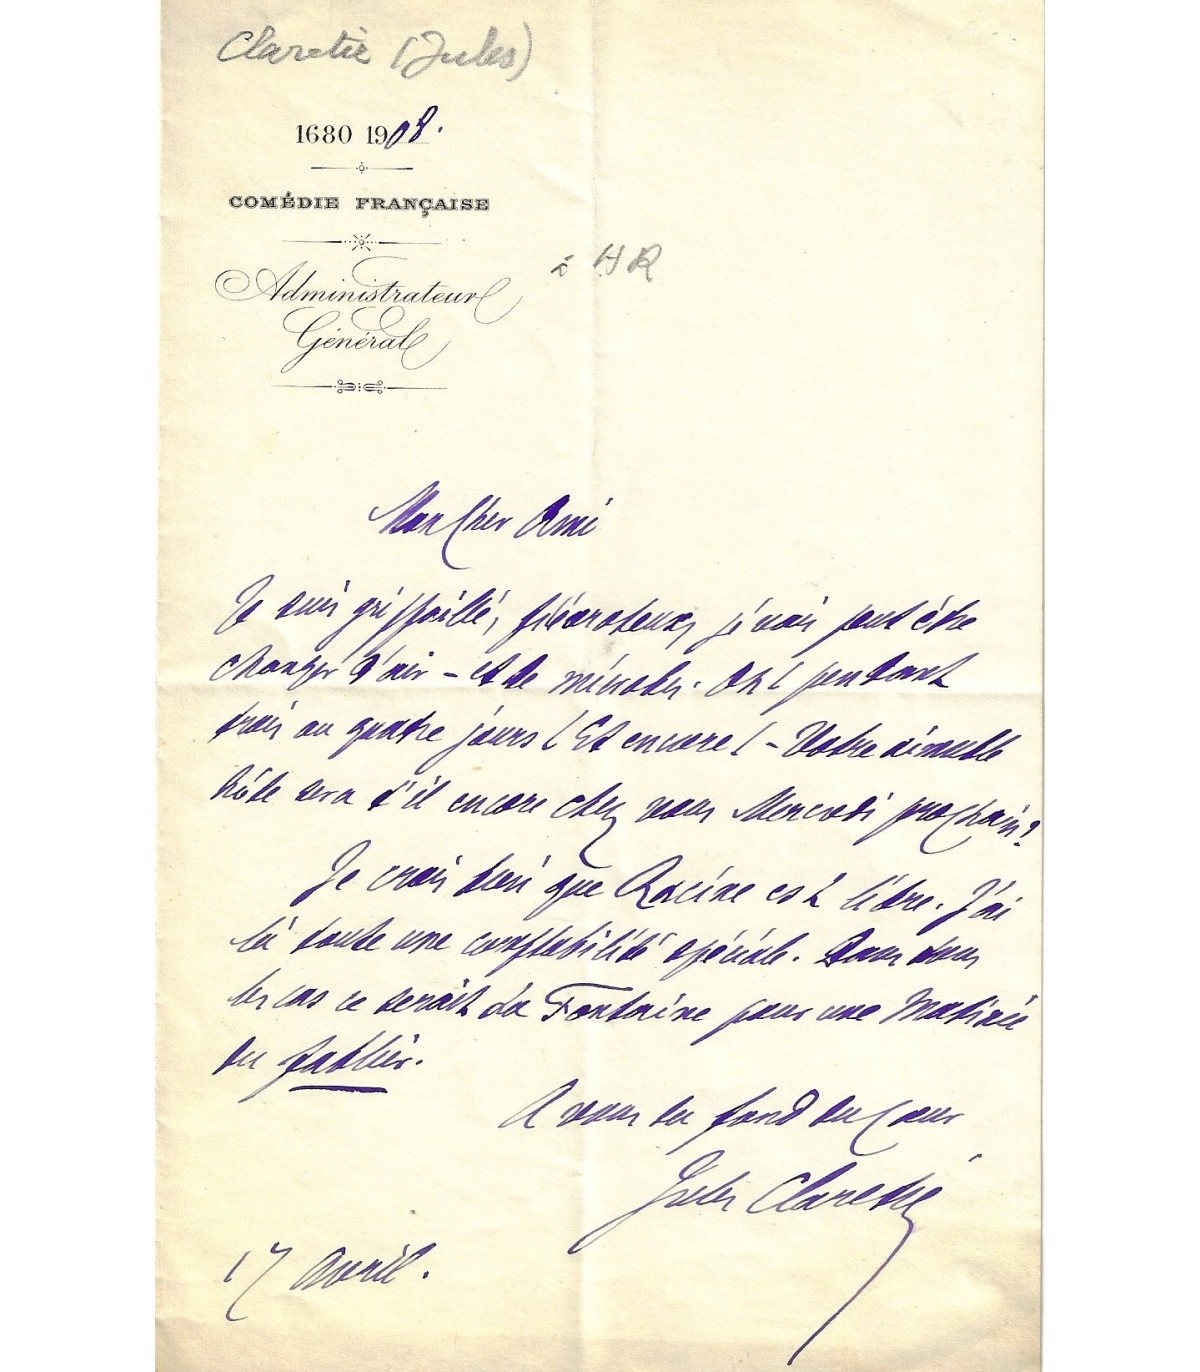 Claretie (Jules)
1680 1908.
COMÉDIE FRANÇAISE
à HR
Administrateur
Général
Mon Cher Ami
Je suis grippaillé, fiévroteux, je vais peut être
changer d'air - et de microbes. Oh! pendant
trois ou quatre jours! Et encore! - Votre aimable
hôte sera t'il encore chez vous Mercredi prochain?
Je crois bien que Racine est libre. J'ai
là toute une comptabilité spéciale. Dans tous
les cas ce serait La Fontaine pour une Matinée
du fablier.
A vous du fond du Coeur
Jules Claretie
17 Avril.